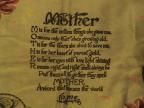 Mother
M is for the million things she gave me,
O means only that she's growing old,
T is for the tears she shed to save me,
H is for her heart of purest gold,
E is for her eyes with love light shining,
R means right and right she'll always be,
Put them all together they spell
MOTHER
A word that means the world
to me.